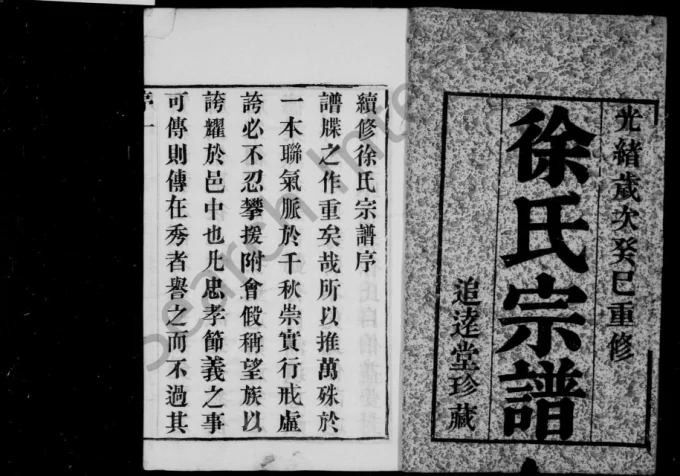 光緒歲次癸巳重修
徐氏宗譜
追遠堂珍藏
續修徐氏宗譜序
譜牒之作重矣哉所以推萬殊於
一本聯氣脈於千秋崇實行戒虛
誇必不忍攀援附會假稱望族以
誇耀於邑中也凡忠孝節義之事
可傳則傳在秀者譽之而不過其
序一
Search Inte